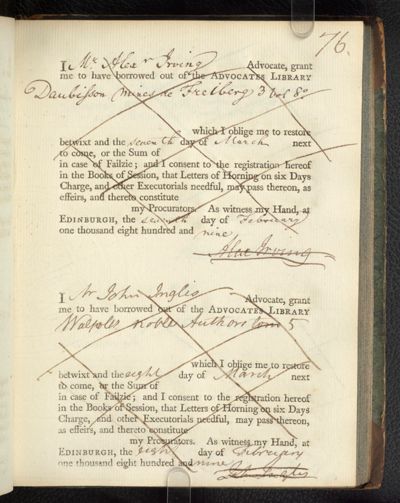 76.
I Mr Alexr Irving Advocate, grant
me to have borrowed out of the ADVOCATES LIBRARY
Daubisson mines de Freiberg 3 vol 8o
which I oblige me to restore
betwixt and the seventh day of March next
to come, or the Sum of
in case of Failzie; and I consent to the registration hereof
in the Books of Session, that Letters of Horning on six Days
Charge, and other Executorials needful, may pass thereon, as
effeirs, and thereto constitute
my Procurators. As witness my Hand, at
EDINBURGH, the seventh day of February
one thousand eight hundred and nine
Alex Irving
I Mr John Inglis Advocate, grant
me to have borrowed out of the ADVOCATES LIBRARY
Walpoles Noble Authors tom 5
which I oblige me to restore
betwixt and the eight day of March next
to come, or the Sum of
in case of Failzie; and I consent to the registration hereof
in the Books of Session, that Letters of Horning on six Days
Charge, and other Executorials needful, may pass thereon,
as effeirs, and thereto constitute
my Procurators. As witness my Hand, at
EDINBURGH, the eight day of February
one thousand eight hundred and nine
John Inglis